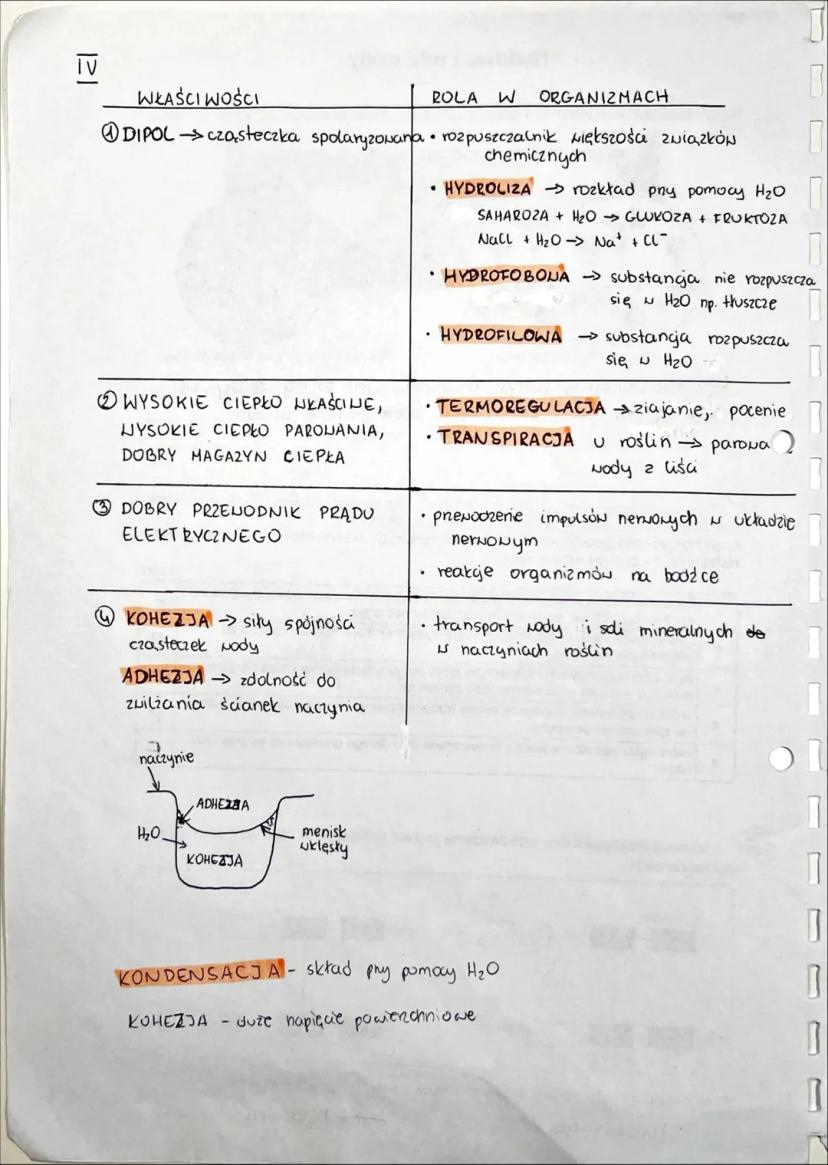 IV
WŁAŚCIWOŚCI
ROLA W ORGANIZMACH
① DIPOL → cząsteczka spolaryzowana
• rozpuszczalnik większości związków
chemicznych
• HYDROLIZA → rozkład przy pomocy H₂O
SAHAROZA + H₂O → GLUKOZA + FRUKTOZA
NaCl + H₂O → Na⁺ + Cl⁻
• HYDROFOBOWA → substancja nie rozpuszcza
się w H₂O np. tłuszcze
• HYDROFILOWA → substancja rozpuszcza
się w H₂O
② WYSOKIE CIEPŁO WŁAŚCIWE,
WYSOKIE CIEPŁO PAROWANIA,
DOBRY MAGAZYN CIEPŁA
• TERMOREGULACJA → ziajanie, pocenie
• TRANSPIRACJA u roślin → parowa
wody z liści
③ DOBRY PRZEWODNIK PRĄDU
ELEKTRYCZNEGO
• przewodzenie impulsów nerwowych w układzie
nerwowym
• reakcje organizmów na bodźce
④ KOHEZJA → siły spójności
cząsteczek wody
ADHEZJA → zdolność do
zwilżania ścianek naczynia
• transport wody i soli mineralnych do
w naczyniach roślin
naczynie
ADHEZJA
H₂O
KOHEZJA
menisk
wklęsły
KONDENSACJA - skład przy pomocy H₂O
KOHEZJA - duże napięcie powierzchniowe